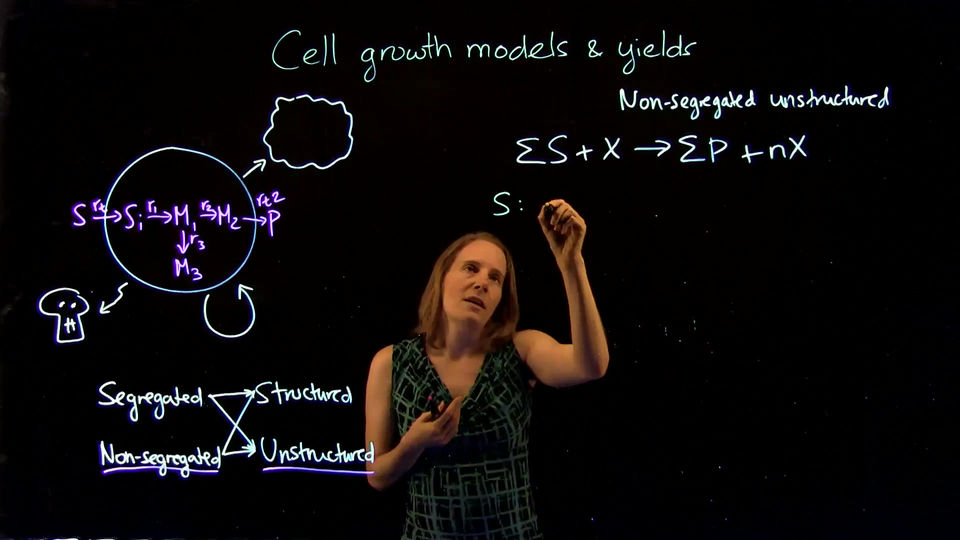 Cell growth models & yields
Non-segregated unstructured
ΣS + X → ΣP + nX
S:
S rt→ Si r1→ M1 r2→ M2 rt2→ P
↓ r3
M3
Segregated Structured
Non-segregated Unstructured